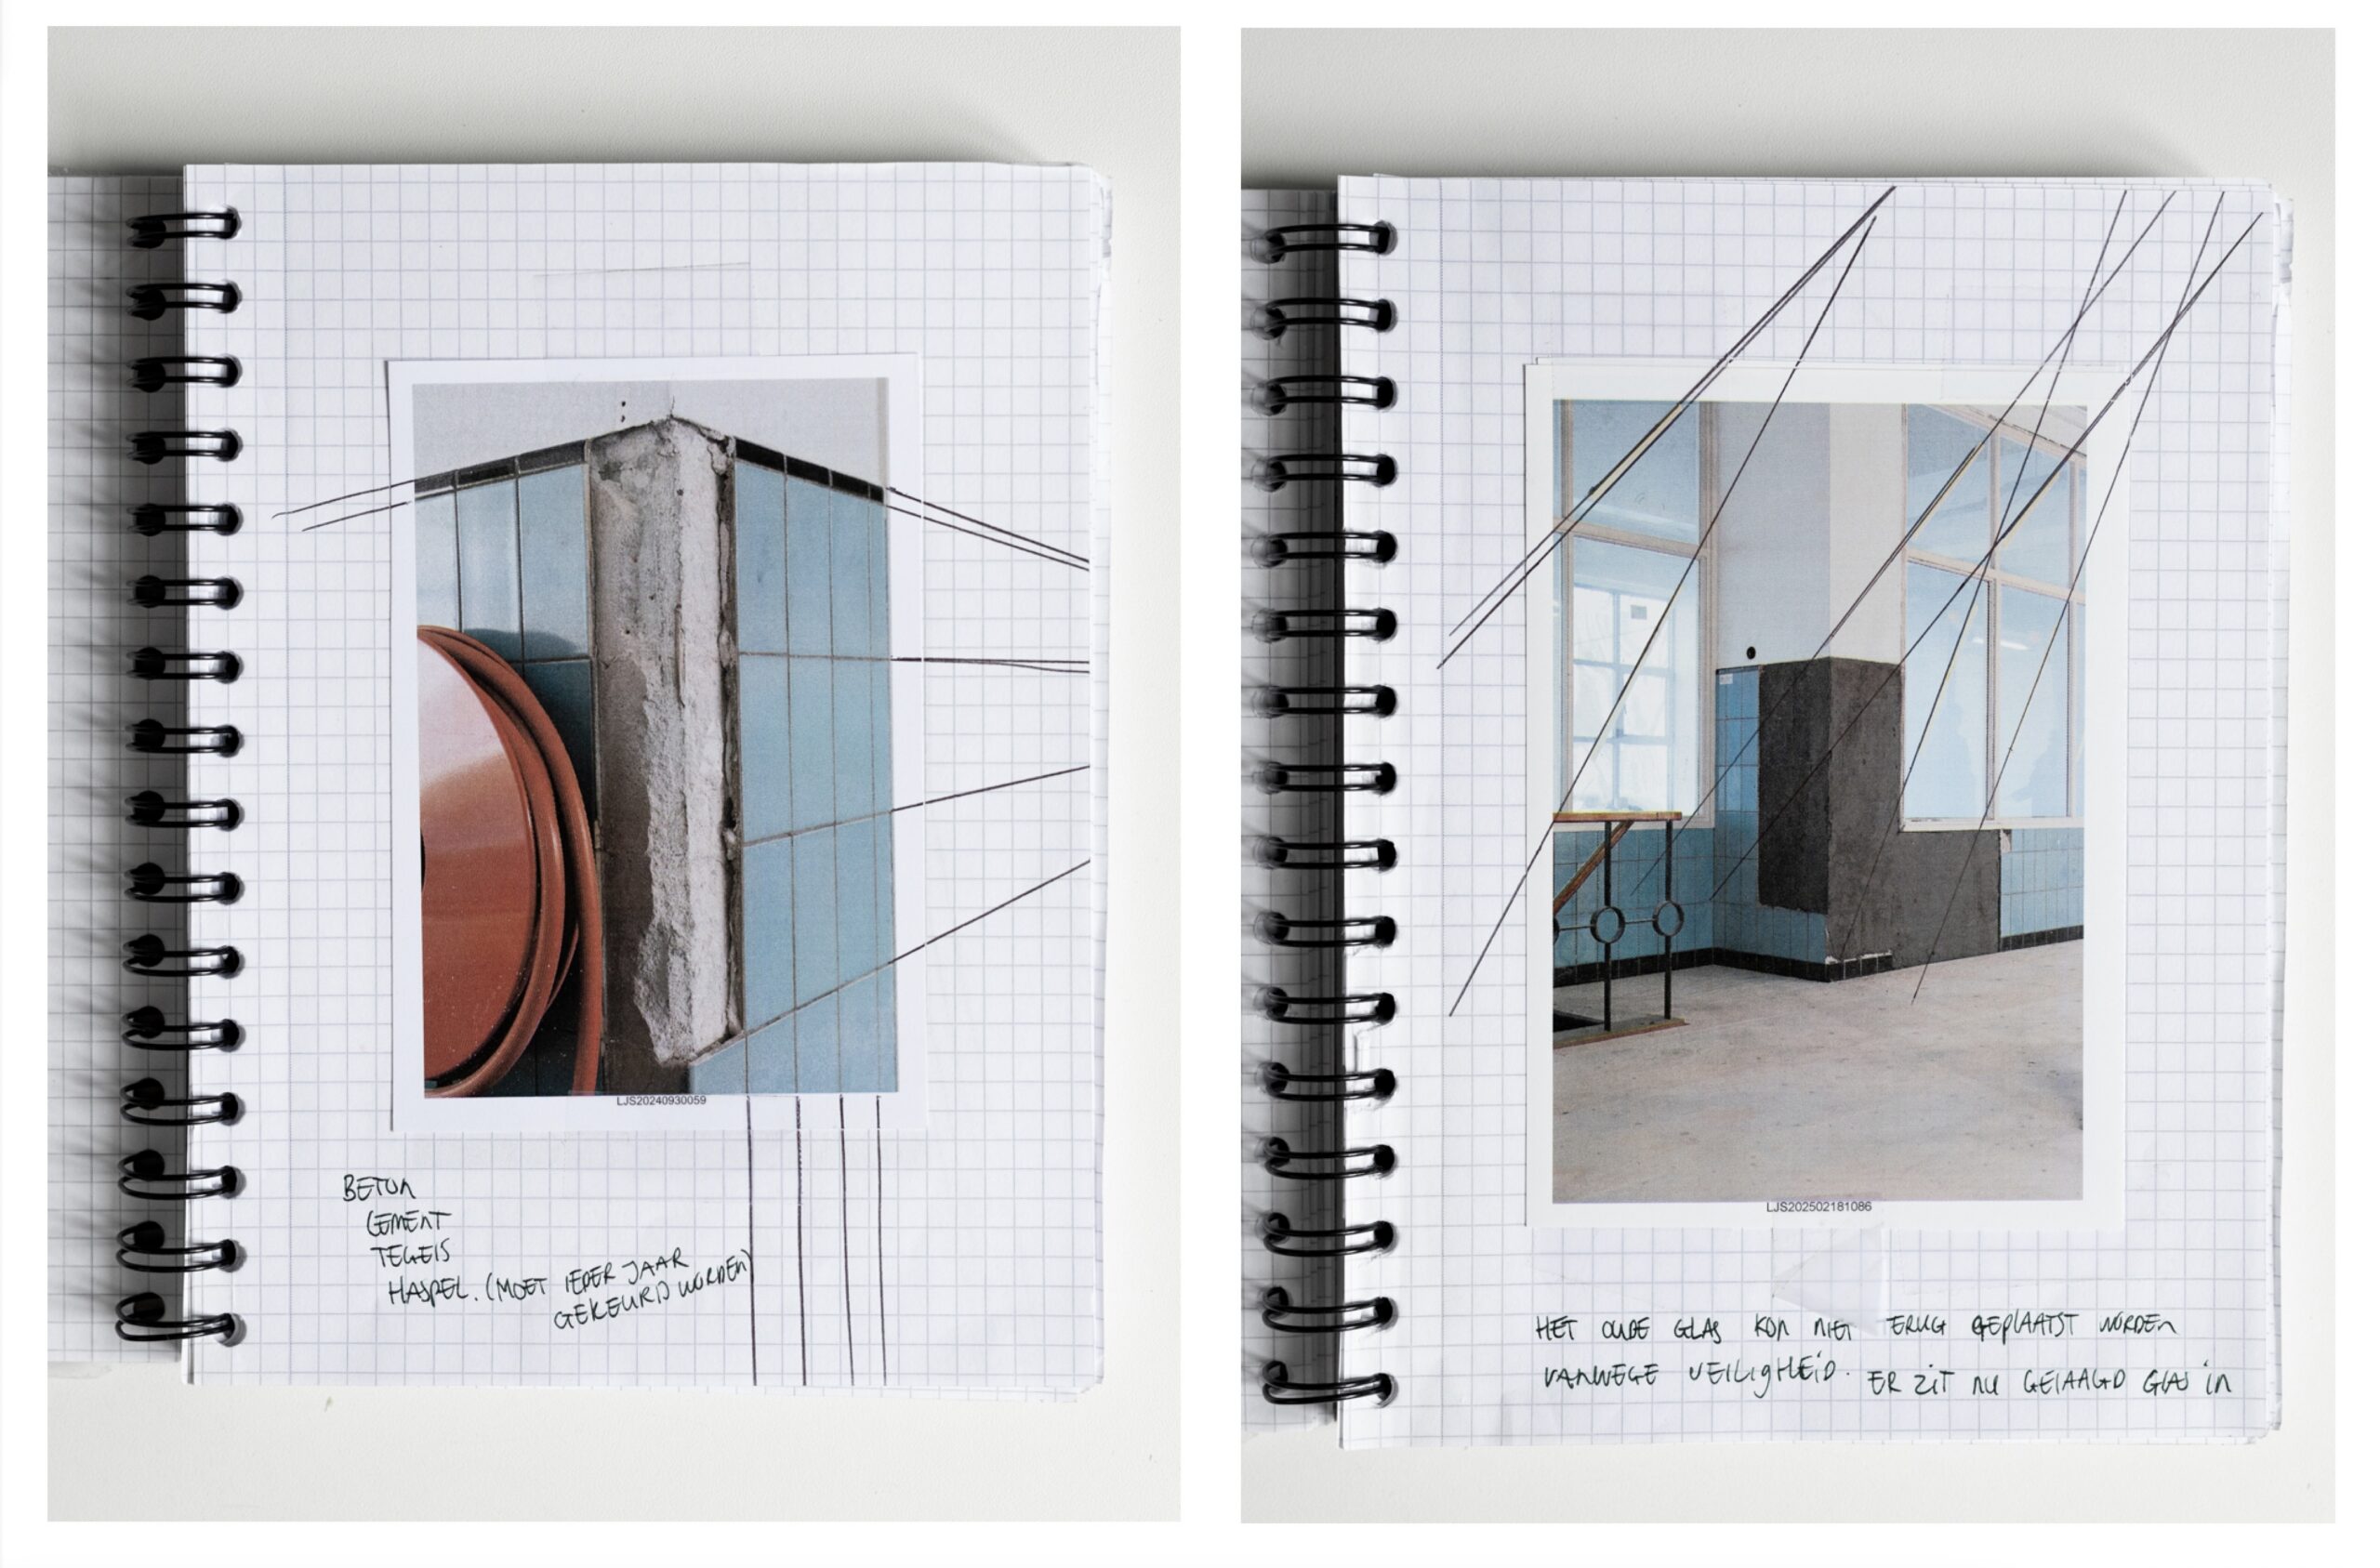 LJS20240930059
BETON
CEMENT
TEGELS
HASPEL. (MOET IEDER JAAR
GEKEURD WORDEN)
LJS202502181086
HET OUDE GLAS KON NIET TERUG GEPLAATST WORDEN
VANWEGE VEILIGHEID. ER ZIT NU GELAAGD GLAS IN